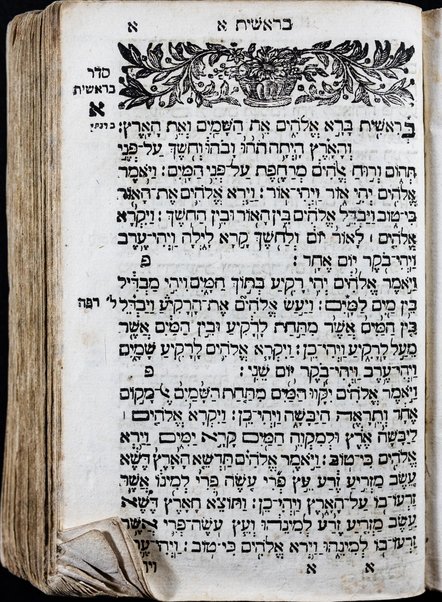 א בראשית א
סדר
בראשית
א
בְּרֵאשִׁית בָּרָא אֱלֹהִים אֵת הַשָּׁמַיִם וְאֵת הָאָרֶץ׃
וְהָאָרֶץ הָיְתָה תֹהוּ וָבֹהוּ וְחֹשֶׁךְ עַל־פְּנֵי
תְהוֹם וְרוּחַ אֱלֹהִים מְרַחֶפֶת עַל־פְּנֵי הַמָּיִם׃ וַיֹּאמֶר
אֱלֹהִים יְהִי אוֹר וַיְהִי־אוֹר׃ וַיַּרְא אֱלֹהִים אֶת־הָאוֹר
כִּי־טוֹב וַיַּבְדֵּל אֱלֹהִים בֵּין הָאוֹר וּבֵין הַחֹשֶׁךְ׃ וַיִּקְרָא
אֱלֹהִים ׀ לָאוֹר יוֹם וְלַחֹשֶׁךְ קָרָא לָיְלָה וַיְהִי־עֶרֶב
וַיְהִי־בֹקֶר יוֹם אֶחָד׃ פ
וַיֹּאמֶר אֱלֹהִים יְהִי רָקִיעַ בְּתוֹךְ הַמָּיִם וִיהִי מַבְדִּיל
בֵּין מַיִם לָמָיִם׃ וַיַּעַשׂ אֱלֹהִים אֶת־הָרָקִיעַ וַיַּבְדֵּל ל׳ רפה
בֵּין הַמַּיִם אֲשֶׁר מִתַּחַת לָרָקִיעַ וּבֵין הַמַּיִם אֲשֶׁר
מֵעַל לָרָקִיעַ וַיְהִי־כֵן׃ וַיִּקְרָא אֱלֹהִים לָרָקִיעַ שָׁמָיִם
וַיְהִי־עֶרֶב וַיְהִי־בֹקֶר יוֹם שֵׁנִי׃ פ
וַיֹּאמֶר אֱלֹהִים יִקָּווּ הַמַּיִם מִתַּחַת הַשָּׁמַיִם אֶל־מָקוֹם
אֶחָד וְתֵרָאֶה הַיַּבָּשָׁה וַיְהִי־כֵן׃ וַיִּקְרָא אֱלֹהִים ׀
לַיַּבָּשָׁה אֶרֶץ וּלְמִקְוֵה הַמַּיִם קָרָא יַמִּים וַיַּרְא
אֱלֹהִים כִּי־טוֹב׃ וַיֹּאמֶר אֱלֹהִים תַּדְשֵׁא הָאָרֶץ דֶּשֶׁא
עֵשֶׂב מַזְרִיעַ זֶרַע עֵץ פְּרִי עֹשֶׂה פְּרִי לְמִינוֹ אֲשֶׁר
זַרְעוֹ־בוֹ עַל־הָאָרֶץ וַיְהִי־כֵן׃ וַתּוֹצֵא הָאָרֶץ דֶּשֶׁא
עֵשֶׂב מַזְרִיעַ זֶרַע לְמִינֵהוּ וְעֵץ עֹשֶׂה־פְּרִי אֲשֶׁר
זַרְעוֹ־בוֹ לְמִינֵהוּ וַיַּרְא אֱלֹהִים כִּי־טוֹב׃ וַיְהִי־עֶרֶב
א א